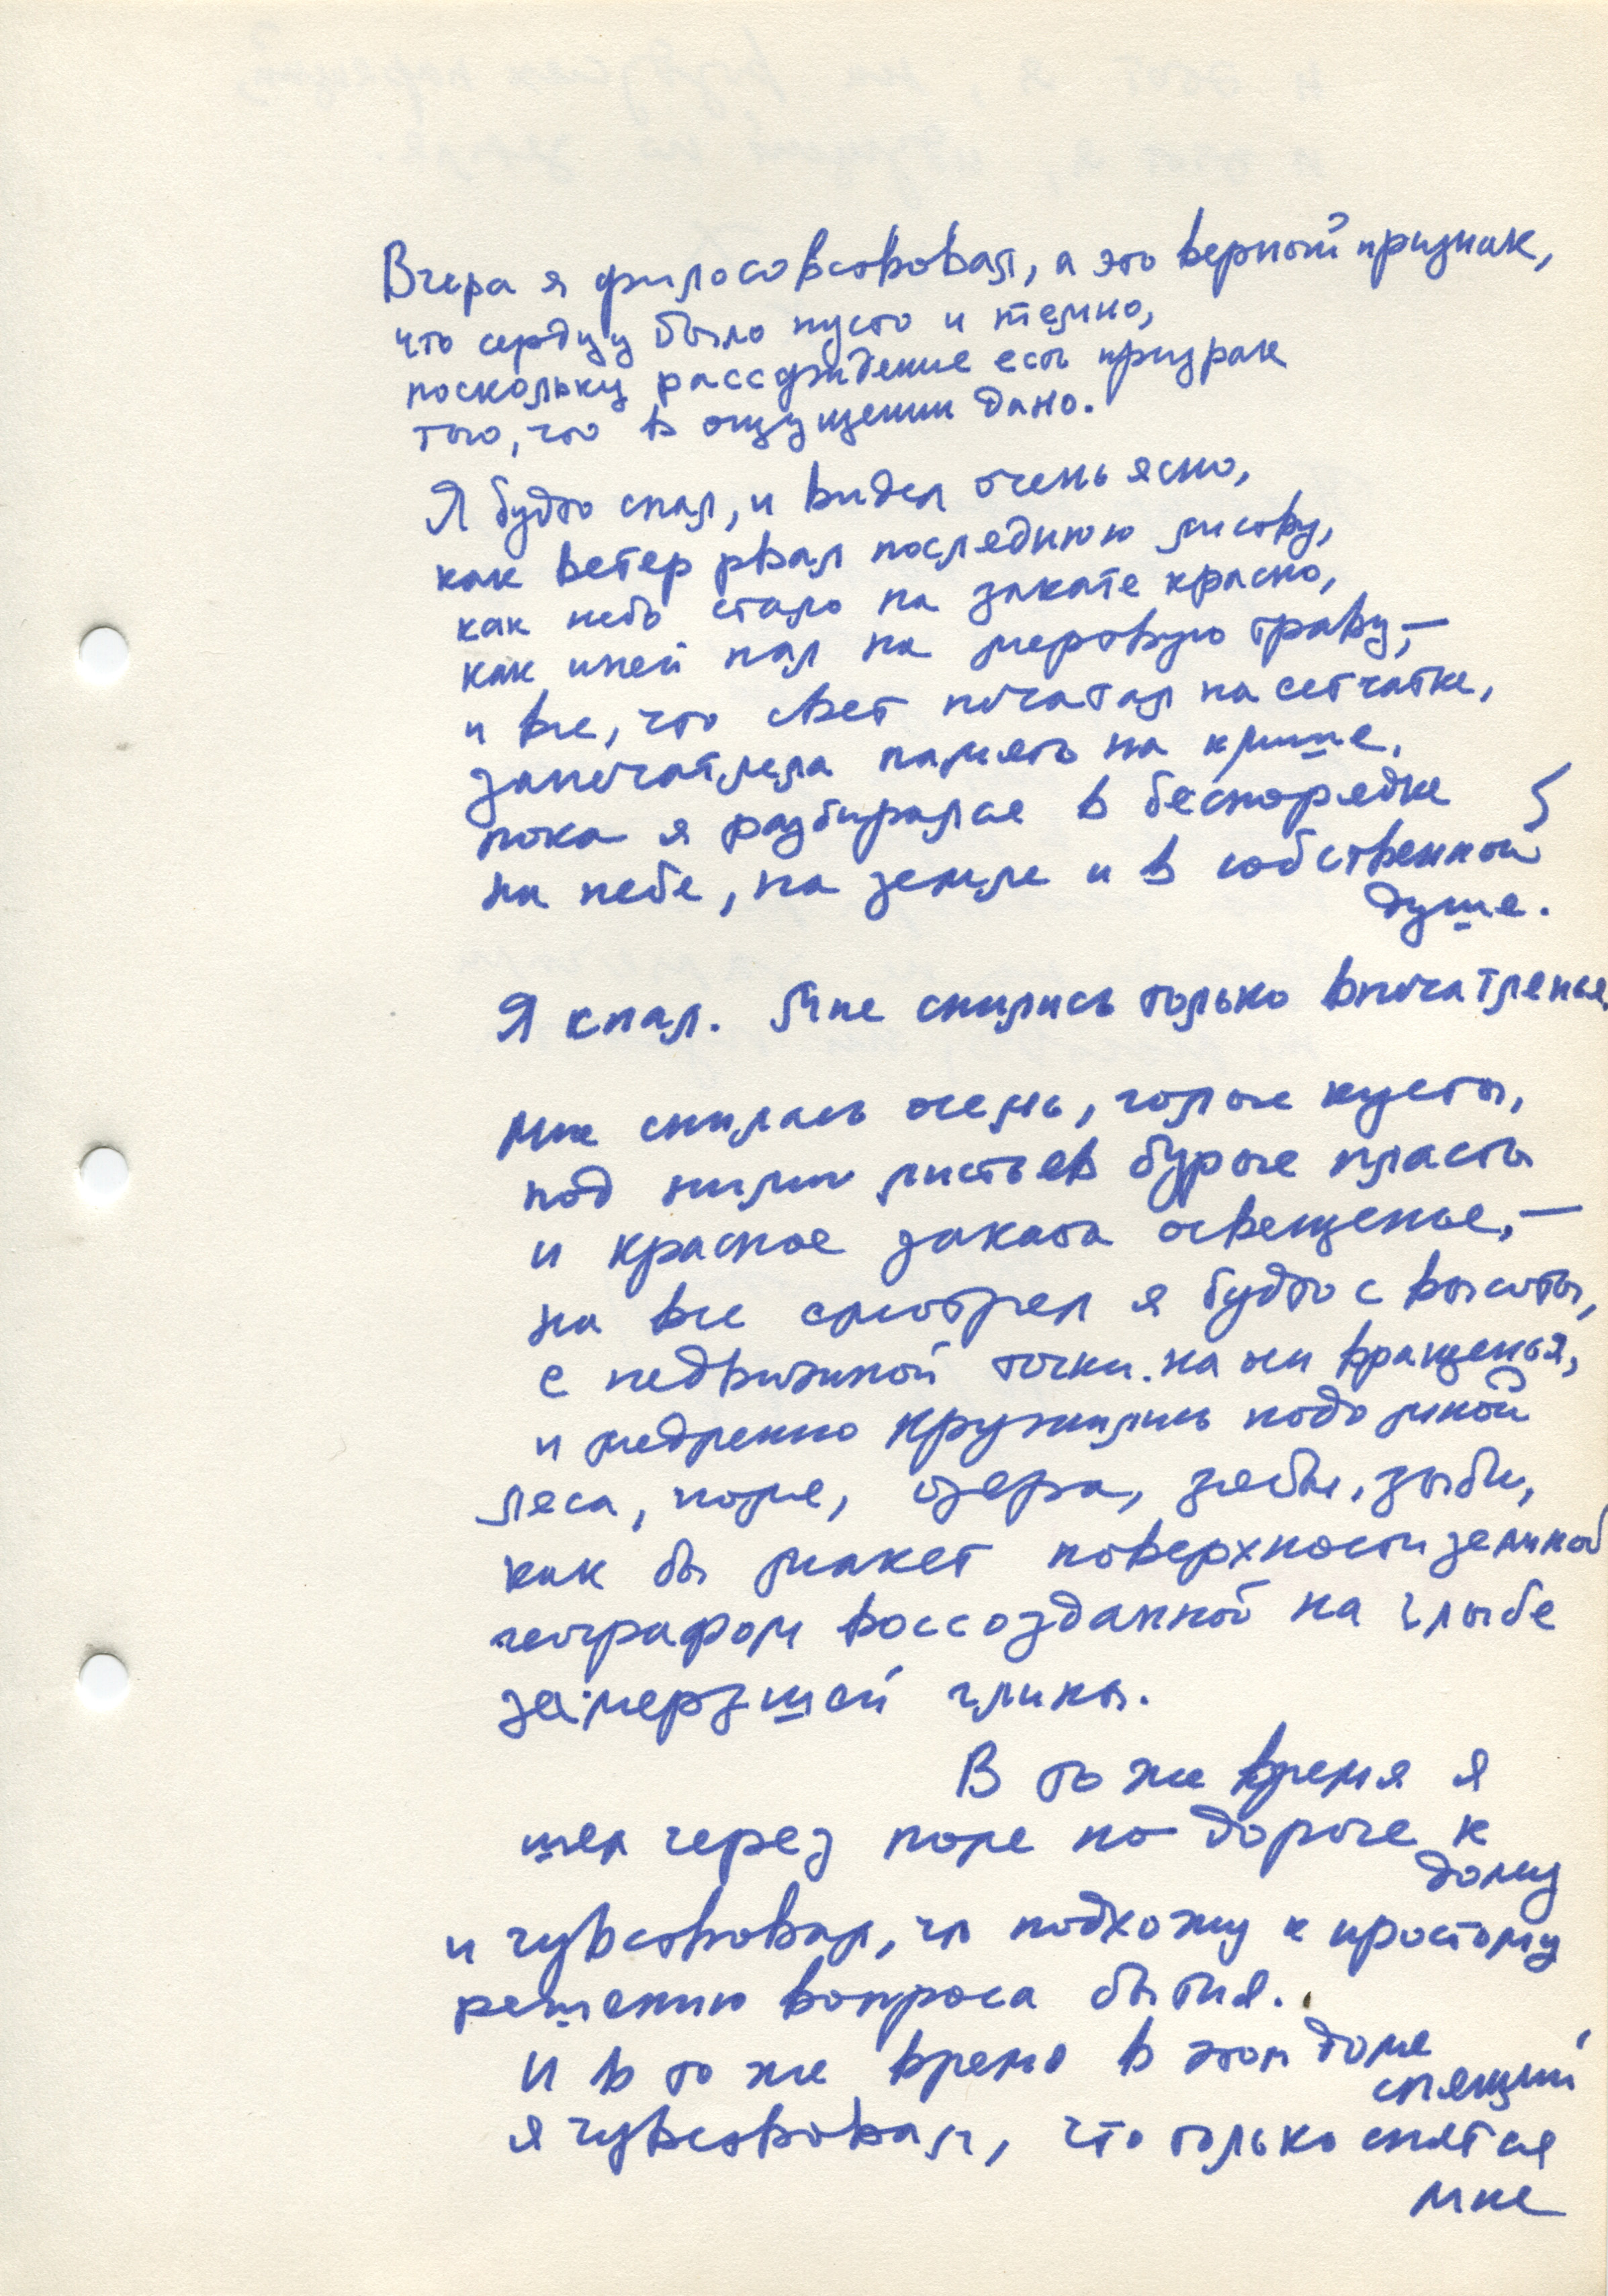 Вчера я философствовал, а это верный признак,
что сердцу было пусто и темно,
поскольку рассуждение есть призрак
того, что в ощущении дано.
Я будто спал, и видел очень ясно,
как ветер рвал последнюю листву,
как небо стало на закате красно,
как иней пал на мертвую траву, —
и все, что свет печатал на сетчатке,
запечатлела память на клише,
пока я разбирался в беспорядке
на небе, на земле и в собственной
душе.
Я спал. Мне снились только впечатленья.
Мне снилась осень, голые кусты,
под ними листьев бурые пласты
и красное заката освещенье, —
на все смотрел я будто с высоты,
с недвижимой точки на оси вращенья,
и медленно кружились подо мной
леса, поля, озера, зябь, зыби,
как бы макет поверхности земной
географом воссозданной на глыбе
замерзшей глины.
В то же время я
шел через поле по дороге к
дому
и чувствовал, что подхожу к простому
решению вопроса бытия.
И в то же время в этом доме
спящий
я чувствовал, что только снится
мне